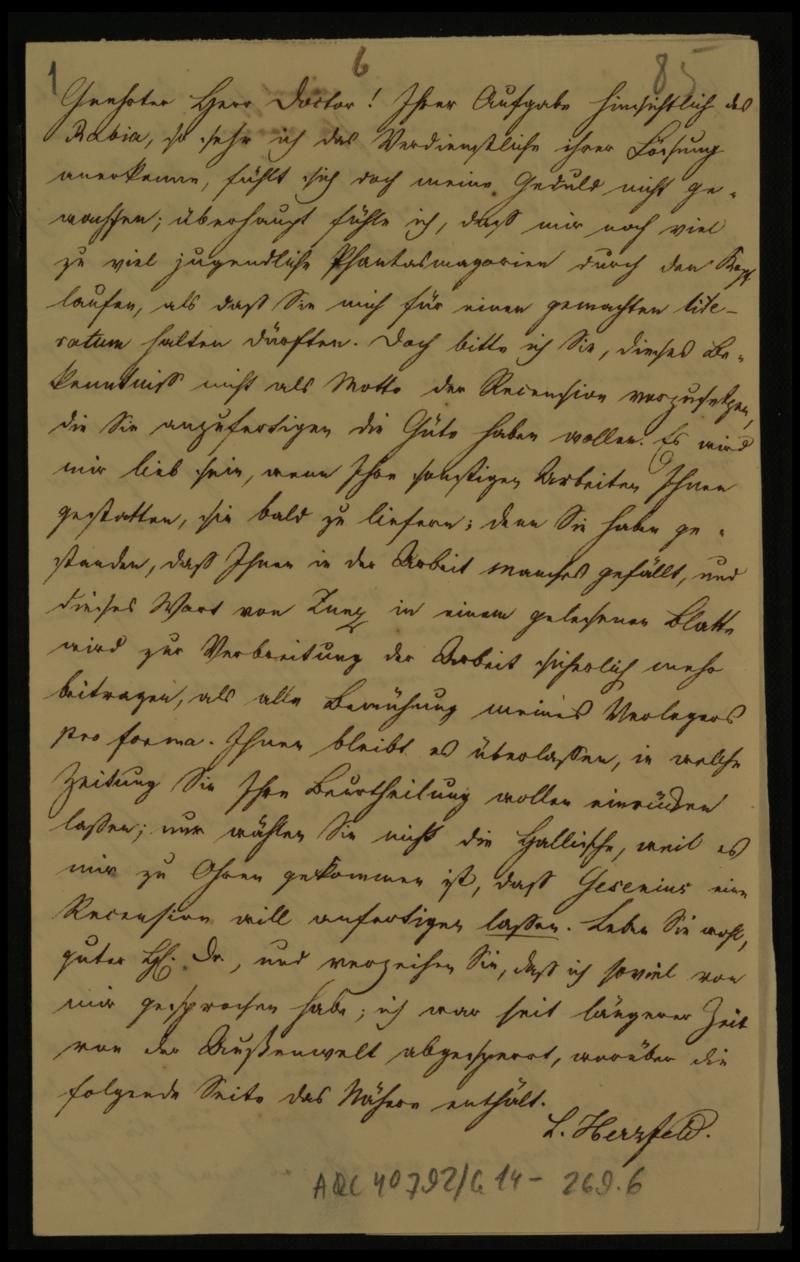 1 6 85
Geehrter Herr Doctor! Ihrer Aufgabe hinsichtlich des
Rabia, so sehr ich das Verdienstliche ihrer Lösung
anerkenne, fühlt sich doch meine Geduld nicht ge-
wachsen; überhaupt fühle ich, daß mir noch viel
zu viel jugendliche Phantasmagorien durch den Kopf
laufen, als daß Sie mich für einen gemachten lite-
ratum halten dürften. Doch bitte ich Sie, dieses Be-
kenntniß nicht als Motto der Recension vorzusetzen,
die Sie anzufertigen die Güte haben wollen. Es wird
mir lieb sein, wenn Ihre sonstigen Arbeiten Ihnen
gestatten, sie bald zu liefern; denn Sie haben ge-
standen, daß Ihnen in der Arbeit manches gefällt, und
dieses Wort von Zunz in einem gelesenen Blatte
wird zur Verbreitung der Arbeit sicherlich mehr
beitragen, als alle Bemühung meines Verlegers
pro forma. Ihnen bleibt es überlaßen, in welche
Zeitung Sie Ihre Beurtheilung wollen einrücken
laßen; nur wählen Sie nicht die Hallische, weil es
mir zu Ohren gekommen ist, daß Gesenius eine
Recension will anfertigen laßen. Leben Sie wohl,
guter Dr, und verzeihen Sie, daß ich soviel von
mir gesprochen habe; ich war seit längerer Zeit
von der Außenwelt abgesperrt, worüber die
folgende Seite das Nähere enthält.
L. Herzfeld.
ARC 4° 792/G 14 - 269.6